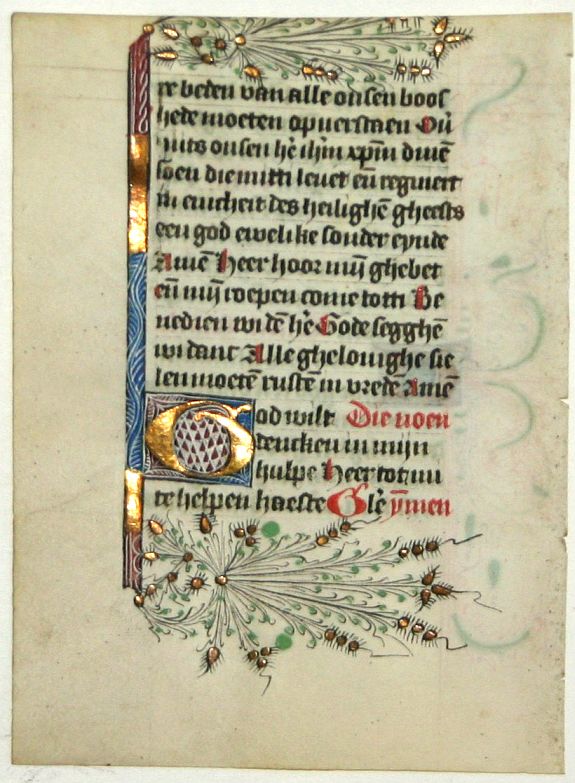 re beden van alle onsen boos
hede moeten opverstaen Ou̅
mits onsen he̅ ih̅m xp̅m dine̅
soen die mitti levet en̅ regniert
in enicheit des heilighe̅ gheests
een god ewelike sonder eynde
Ame̅ Heer hoor mijn ghebet
en̅ mijn roepen come totti Be
nedien wi de̅ he̅ Gode segghe̅
wi danc Alle ghelovighe sie
len moete̅ ruste̅ in vrede Ame̅
God wilt Die noen
dencken in mijn
hulpe Heer tot mi
te helpen haeste Gle̅ ym̅en